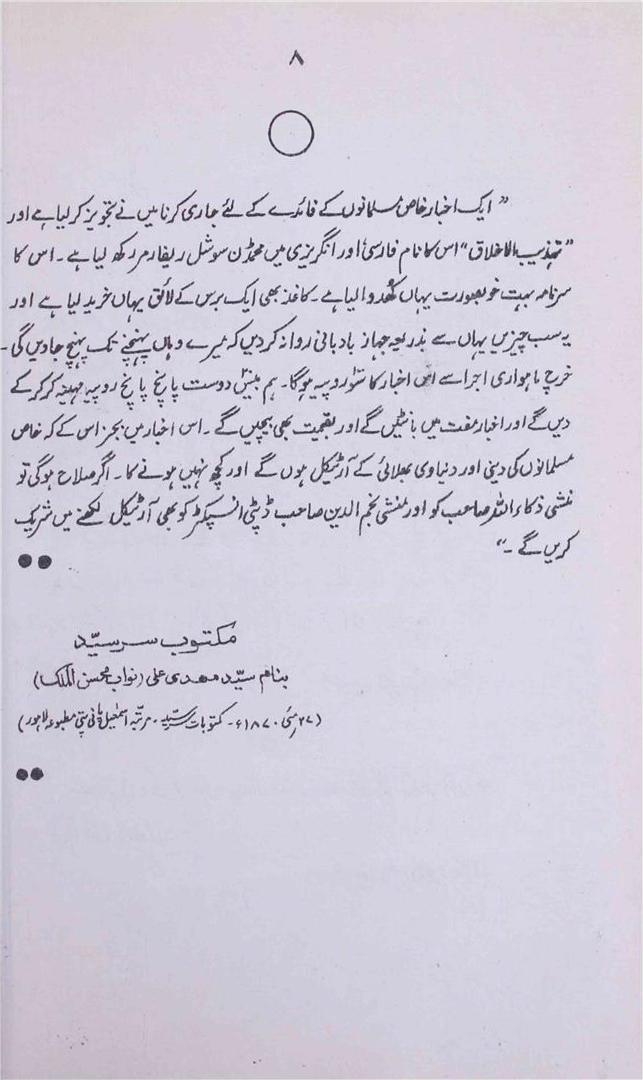 ۸
”ایک اخبار خاص مسلمانوں کے فائدے کے لئے جاری کرنا میں نے تجویز کر لیا ہے اور
”تہذیب الاخلاق“ اس کا نام فارسی اور انگریزی میں محمڈن سوشل ریفارمر رکھ لیا ہے۔ اس کا
سرنامہ بہت خوبصورت یہاں کُھدوا لیا ہے۔ کاغذ بھی ایک برس کے لائق یہاں خرید لیا ہے اور
یہ سب چیزیں یہاں سے بذریعہ جہاز بادبانی روانہ کر دیں کہ میرے وہاں پہنچنے تک پہنچ جاویں گی۔
خرچ ماہواری اجرائے اس اخبار کا سَو روپیہ ہوگا۔ ہم بیس دوست پانچ پانچ روپیہ مہینہ کر کر کے
دیں گے اور اخبار مفت میں بانٹیں گے اور بقیمت بھی بیچیں گے۔ اس اخبار میں بجز اس کے کہ خاص
مسلمانوں کی دینی اور دنیاوی بھلائی کے آرٹیکل ہوں گے اور کچھ نہیں ہونے کا۔ اگر صلاح ہوگی تو
منشی ذکاء اللہ صاحب کو اور منشی نجم الدین صاحب ڈپٹی انسپکٹر کو بھی آرٹیکل لکھنے میں شریک
کریں گے۔“
مکتوب سرسیّد
بنام سیّد مھدی علی (نواب محسن الملک)
(۲۷ مئی ۱۸۷۰ء۔ مکتوبات سرسیّد۔ مرتبہ اسمٰعیل پانی پتی مطبوعہ لاہور)